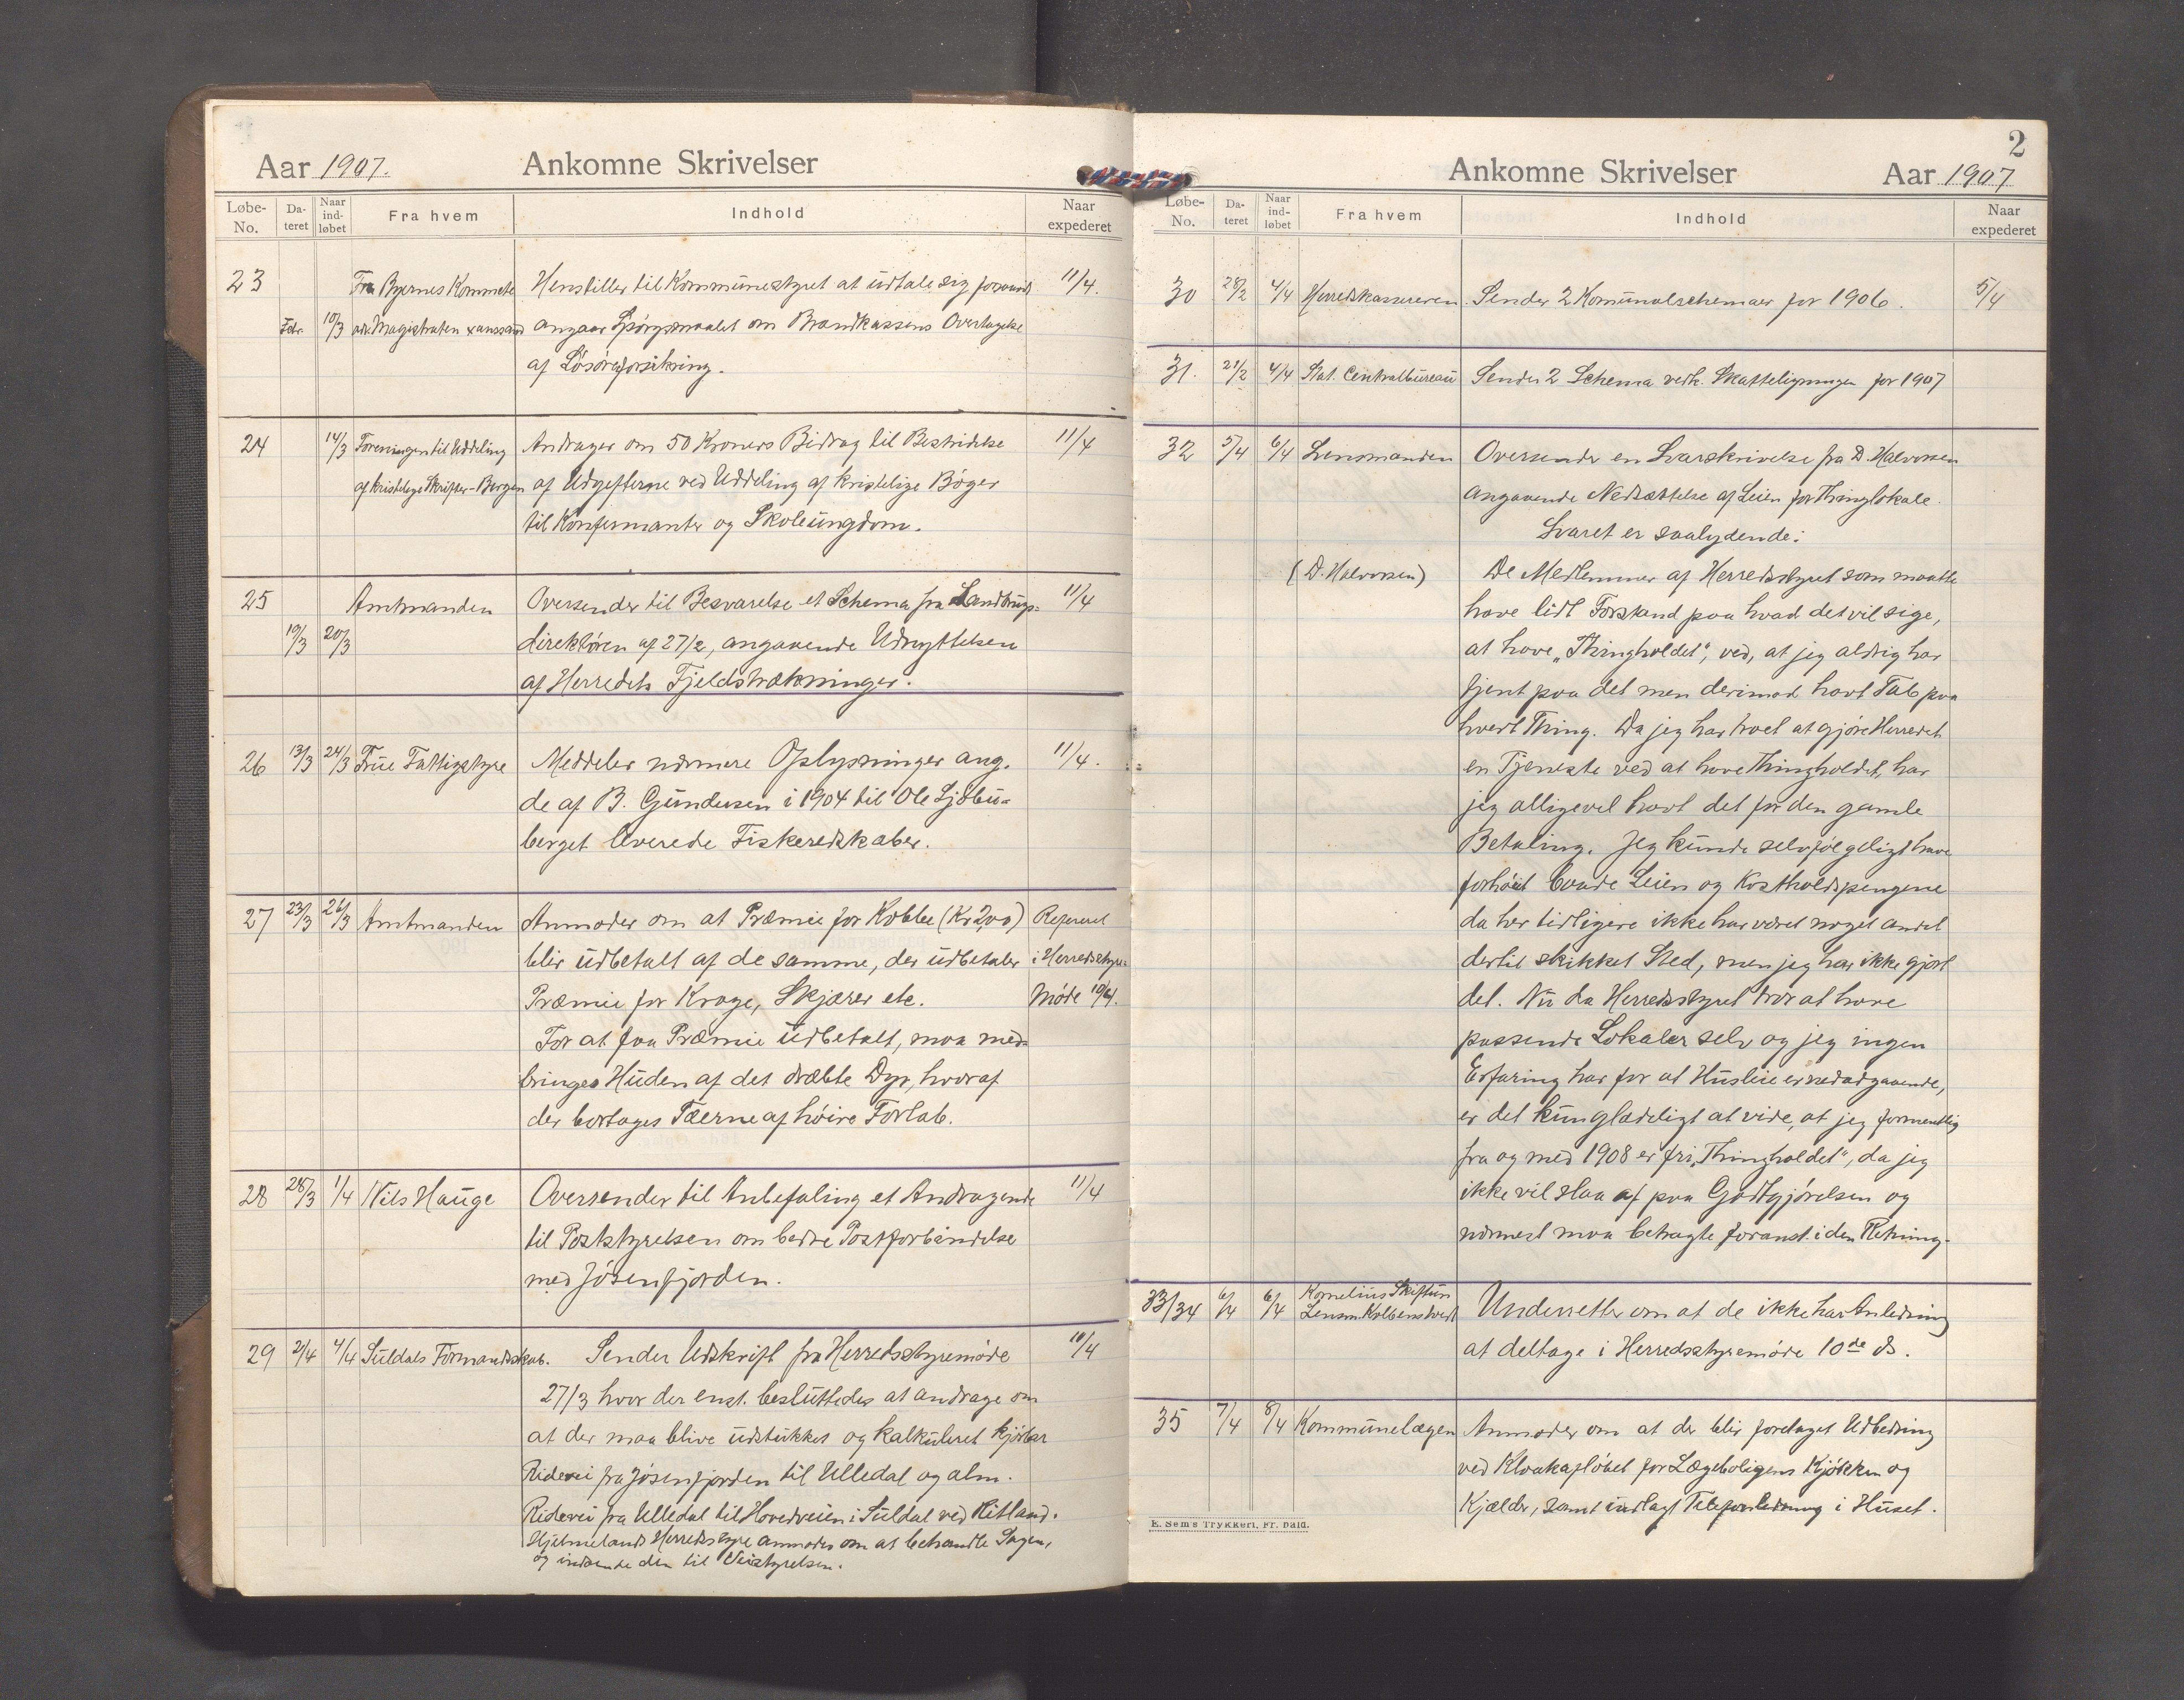 Aar 1907. Ankomne Skrivelser
Løbe-No. Da-teret Naar ind-løbet Fra hvem Indhold Naar expederet
23 Fra Byernes Kommete Henstiller til Kommunestyret at udtale sig 11/4.
Febr. 10/3 Magistraten angaar Spørgsmaalet om Brandkassens Overtagelse
af Løsøreforsikring.
24 14/3 Foreningen til Uddeling Andrager om 50 Kroners Bidrag til Bestridelse 11/4
af kristelige Skrifter-Bergen af Udgifterne ved Uddeling af kristelige Bøger
til Konfirmanter og Skoleungdom.
25 Amtmanden Oversender til Besvarelse et Schema fra Landbrugs- 11/4
19/3 20/3 direktøren af 27/2, angaaende Udnyttelsen
af Herredets Fjeldstrækninger.
26 13/3 24/3 Fattigstyre Meddeler nærmere Oplysninger ang. 11/4.
de af B. Gundersen i 1904 til Ole
berget leverede Fiskeredskaber.
27 23/3 26/3 Amtmanden Anmoder om at Præmie for Kobbe (Kr 2,00) Refereret
blir udbetalt af de samme, der udbetaler i Herredsstyre-
Præmie for Krage, Skjærer etc. Møde 10/4.
For at faa Præmie udbetalt, maa med-
bringes Huden af det dræbte Dyr, hvoraf
der borttages Tæerne af høire Forlab.
28 28/3 1/4 Nils Hauge Oversender til Anbefaling et Andragende 11/4
til Poststyrelsen om bedre Postforbindelse
med Jøsenfjorden.
29 2/4 4/4 Suldals Formandskab. Sender Udskrift fra Herredsstyremøde 10/4
27/3 hvor der enst. besluttedes at andrage om
at der maa blive udstukket og kalkuleret kjørbar
Ridevei fra Jøsenfjorden til Ulledal og alm.
Ridevei fra Ulledal til Hovedveien i Suldal ved Ritland.
Hjelmelands Herredsstyre anmodes om at behandle Sagen,
og indsende den til Veistyrelsen.
2
Ankomne Skrivelser Aar 1907
Løbe-No. Da-teret Naar ind-løbet Fra hvem Indhold Naar expederet
30 28/2 4/4 Herredskassereren Sender 2 Komunalschemaer for 1906. 5/4
31. 21/2 4/4 Stat. Centralbureau Sender 2 Schema vedk. Skatteligningen for 1907
32 5/4 6/4 Lensmanden Oversender en Svarskrivelse fra D. Halvorsen
angaaende Nedsættelse af Leien for Thinglokale.
Svaret er saalydende:
(D. Halvorsen) De Medlemmer af Herredsstyret som maatte
have lidt Forstand paa hvad det vil sige,
at have „Thingholdet", ved, at jeg aldrig har
tjent paa det men derimod havt Tab paa
hvert Thing. Da jeg har troet at gjøre Herredet
en Tjeneste ved at have Thingholdet, har
jeg alligevel havt det for den gamle
Betaling. Jeg kunde selvfølgeligt have
forhøiet baade Leien og Kostholdspengene
da her tidligere ikke har været noget andet
dertil skikket Sted, men jeg har ikke gjort
det. Nu da Herredsstyret tror at have
passende Lokaler selv og jeg ingen
Erfaring har for at Husleie er nedadgaaende,
er det kun glædeligt at vide, at jeg formentlig
fra og med 1908 er fri „Thingholdet", da jeg
ikke vil slaa af paa Godtgjørelsen og
nærmest maa betragte foranst. i den Retning.
33/34 6/4 6/4 Kornelius Skiftun
Lensm. Kolbenstvedt Underretter om at de ikke har Anledning
at deltage i Herredsstyremøde 10de ds.
35 7/4 8/4 Kommunelægen Anmoder om at der blir foretaget Udbedring
ved Kloakafløbet for Lægeboligens Kjøkken og
Kjælder, samt indlagt Telefonledning i Huset.
E. Sem's Trykkeri, Fr.hald.